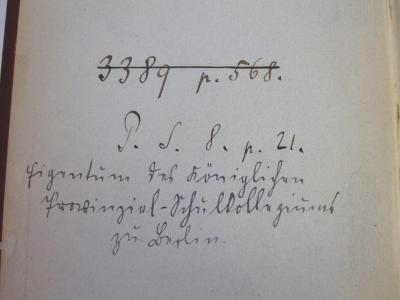 3389 p. 568.
P. S. 8. p. 21.
Eigentum des Königlichen
Provinzial-Schulkollegiums
zu Berlin.